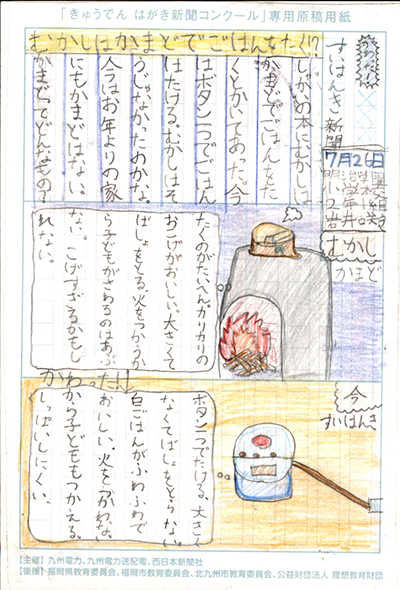 「きゅうでん はがき新聞コンクール」専用原稿用紙
むかしはかまどでごはんをたく!?
すいはんき新聞
7月26日
しゃかいの本にむかしは
かまどでごはんをた
くとかいてあった。今
はボタン一つでごはん
はたける。むかしはそ
うじゃなかったのかな。
今はお年よりの家
にもかまどはない。
かまどってどんなもの?
むかし
かまど
たくのがたいへん。カリカリの
おこげがおいしい。大きくて
ばしょをとる。火をつかうか
ら子どもがさわるのはあぶ
ない。こげすぎるかもし
れない。
わかった!
今
すいはんき
ボタン一つでたける。大きく
なくてばしょをとらない。
白ごはんがふわふわで
おいしい。火をつかわな
いから子どももつかえる。
しっぱいしにくい。
【主催】九州電力、九州電力送配電、西日本新聞社
【後援】福岡県教育委員会、福岡市教育委員会、北九州市教育委員会、公益財団法人 理想教育財団